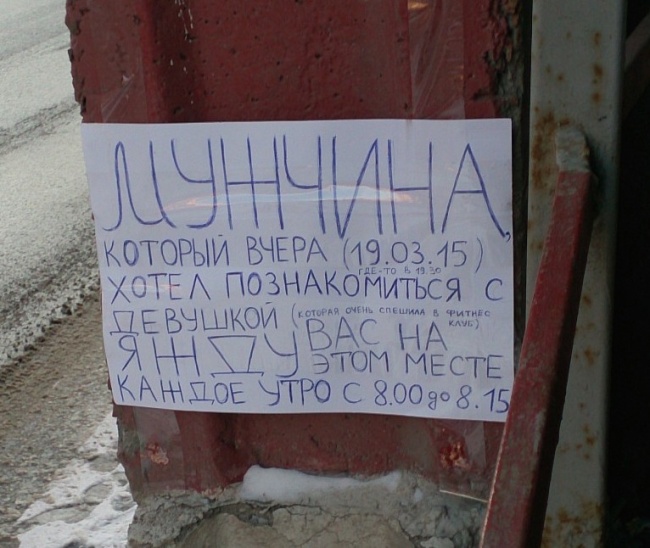 МУЖЧИНА,
КОТОРЫЙ ВЧЕРА (19.03.15)
ГДЕ-ТО В 19.30
ХОТЕЛ ПОЗНАКОМИТЬСЯ С
ДЕВУШКОЙ (КОТОРАЯ ОЧЕНЬ СПЕШИЛА В ФИТНЕС
КЛУБ)
Я ЖДУ ВАС НА
ЭТОМ МЕСТЕ
КАЖДОЕ УТРО С 8.00 до 8.15